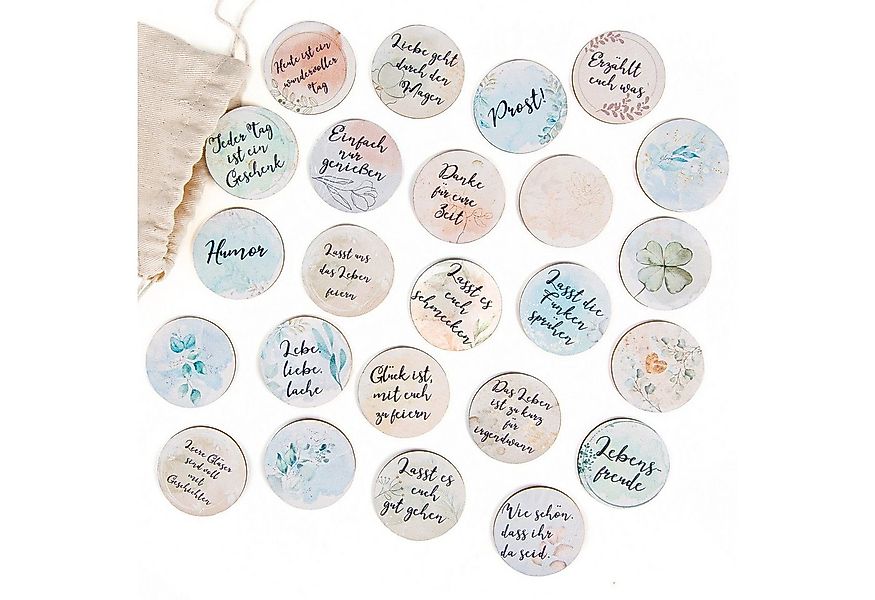 Heute ist ein
wundervoller
Tag
Liebe geht
durch den
Magen
Prost!
Erzählt
euch was
Jeder Tag
ist ein
Geschenk
Einfach
nur
genießen
Danke
für eure
Zeit
Humor
Lasst uns
das Leben
feiern
Lasst es
euch
schmecken
Lasst die
Funken
sprühen
Lebe.
liebe.
lache
Glück ist,
mit euch
zu feiern
Das Leben
ist zu kurz
für
irgendwann
Leere Gläser
sind voll
mit
Geschichten
Lasst es
euch
gut gehen
Lebens-
freude
Wie schön.
dass ihr
da seid.